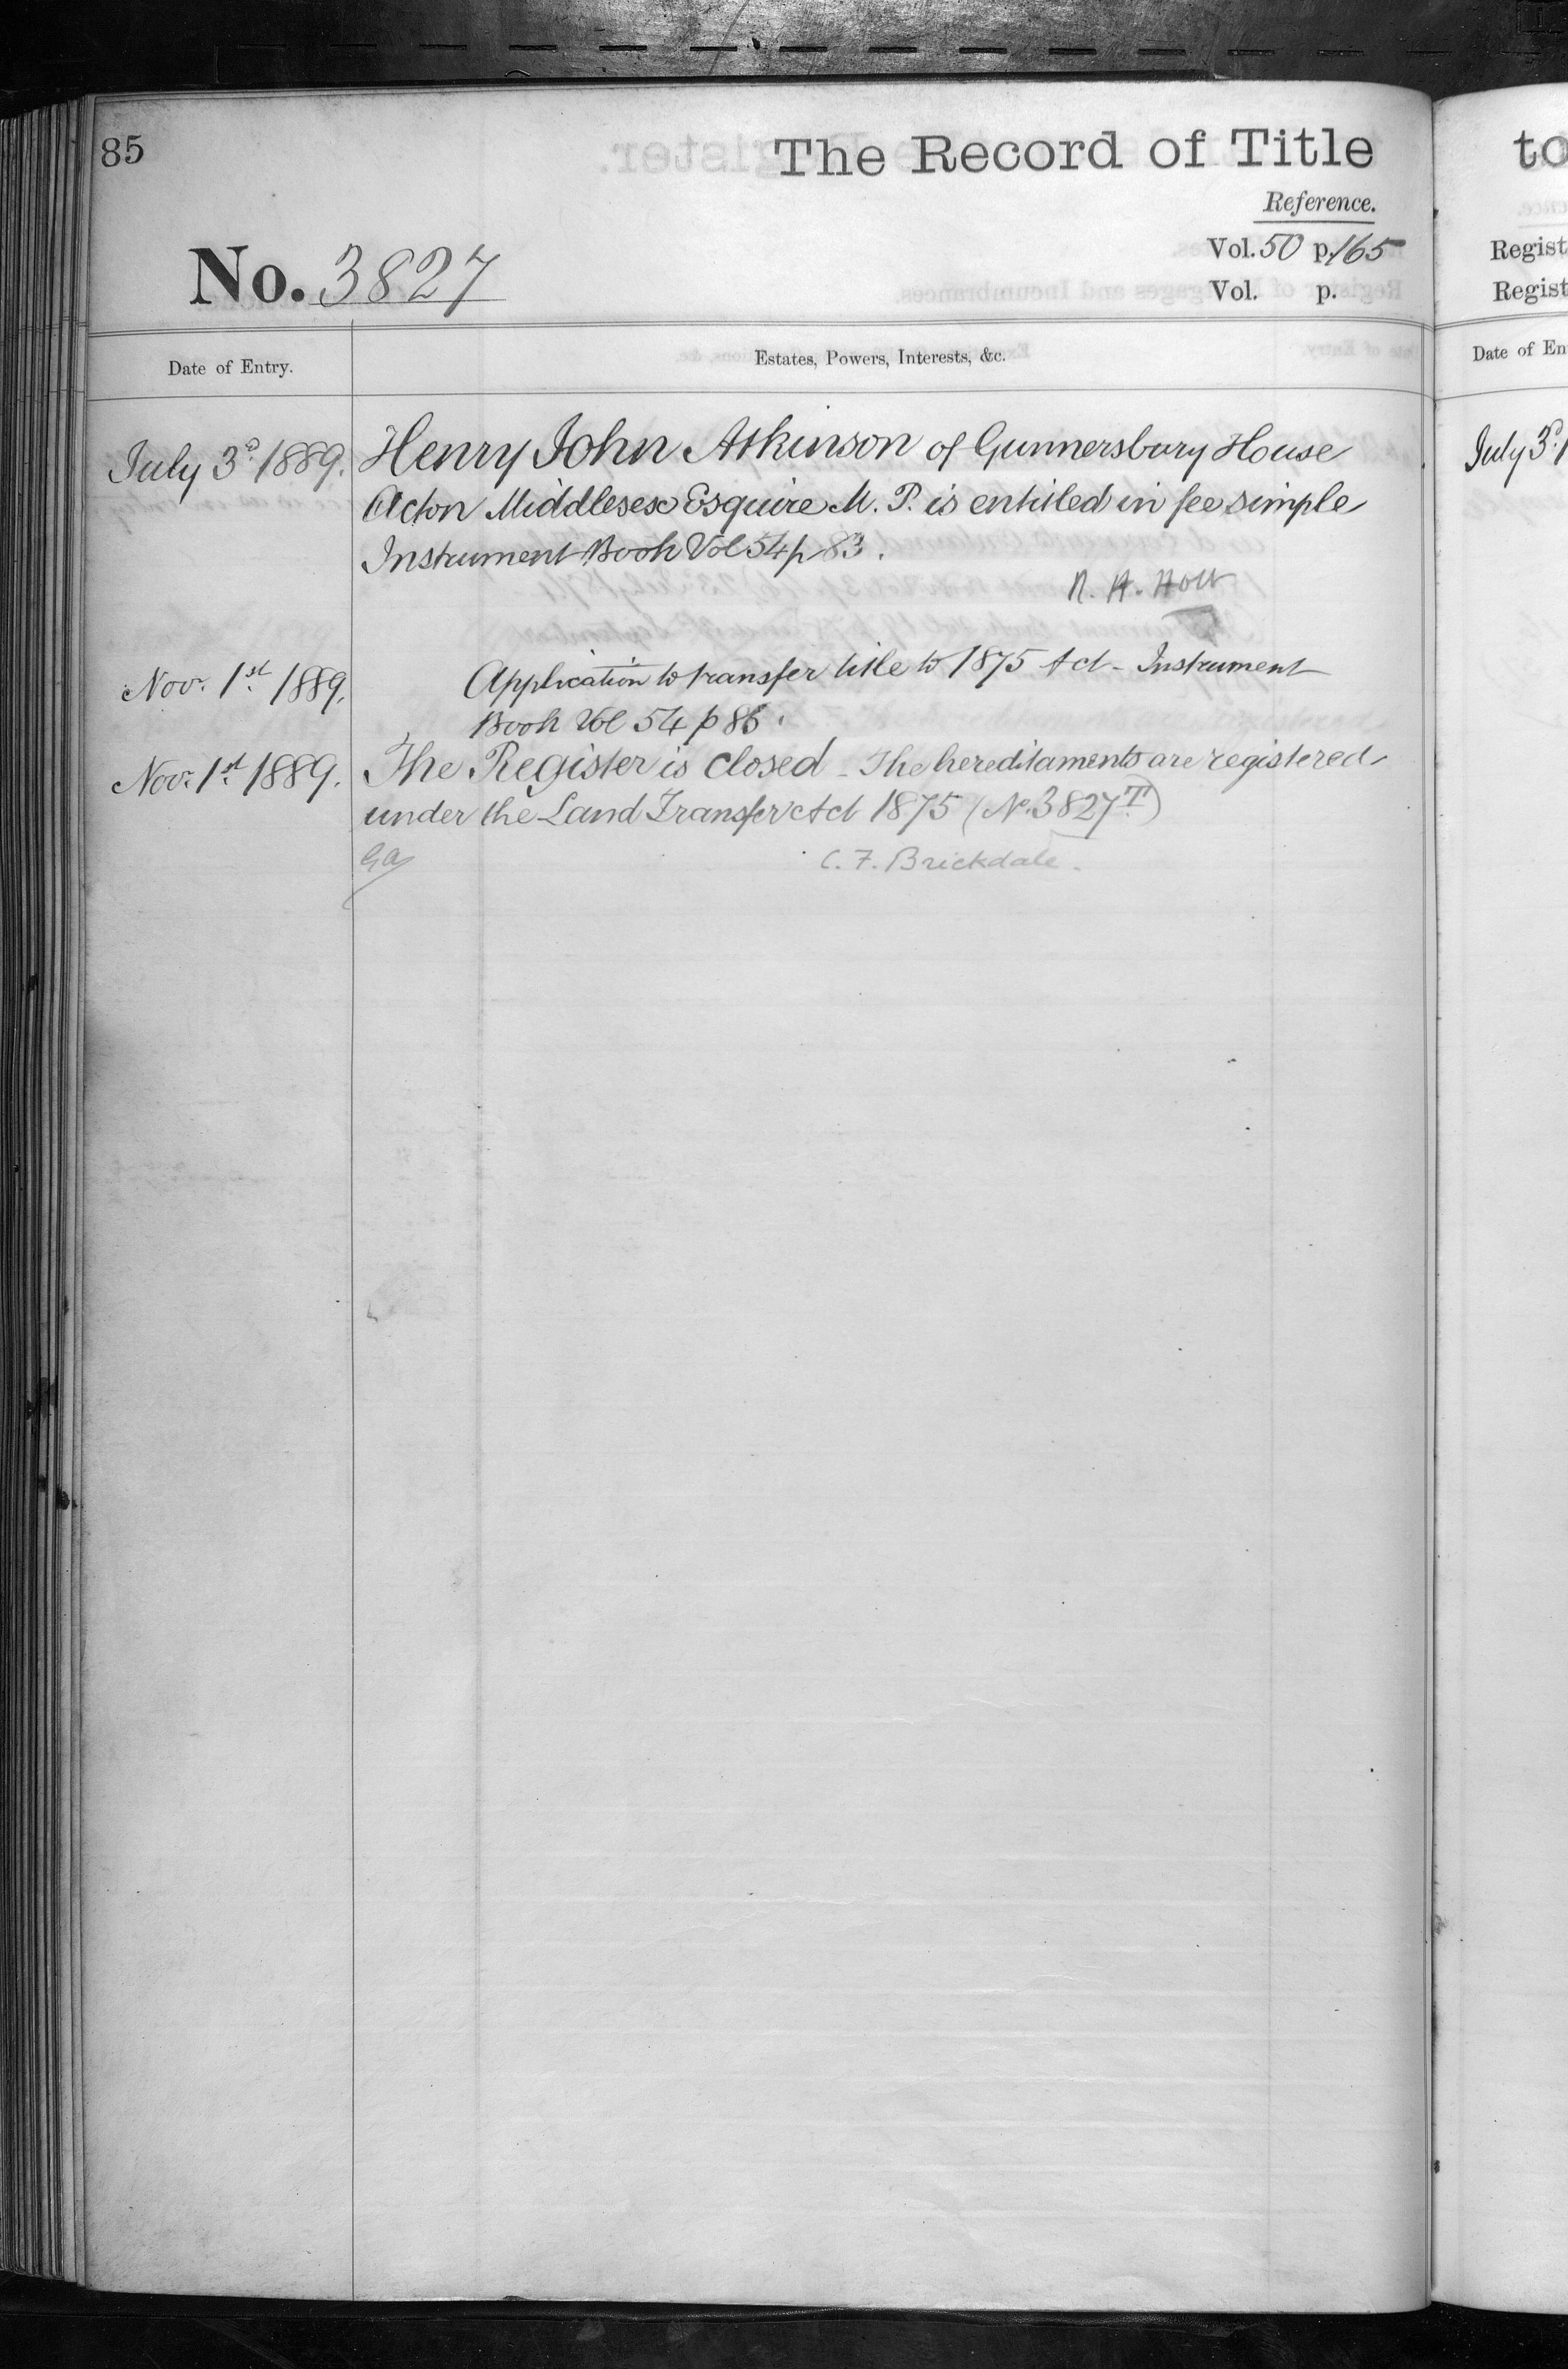 85
The Record of Title
Reference.
Vol. 50 p. 165
No. 3827
Vol. p.
Date of Entry.
Estates, Powers, Interests, &c.
July 3d 1889.
Henry John Atkinson of Gunnersbury House
Acton Middlesex Esquire M. P. is entitled in fee simple
Instrument Book Vol 54 p 83.
R. H. Holt
Nov. 1st 1889.
Application to transfer title to 1875 Act - Instrument
Book Vol 54 p 86.
Nov. 1st 1889.
The Register is closed - The hereditaments are registered
under the Land Transfer Act 1875 (No. 3827T)
C. F. Brickdale.
to
Regist
Regist
Date of En
July 3d 1